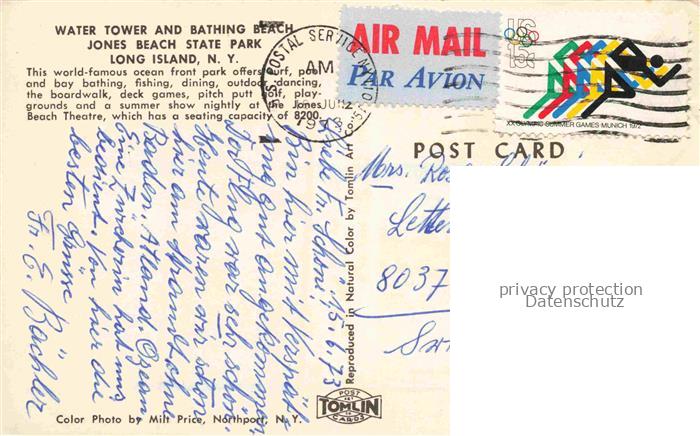 WATER TOWER AND BATHING BEACH
JONES BEACH STATE PARK
LONG ISLAND, N. Y.
This world-famous ocean front park offers surf, pool
and bay bathing, fishing, dining, outdoor dancing,
the boardwalk, deck games, pitch putt golf, play-
grounds and a summer show nightly at the Jones
Beach Theatre, which has a seating capacity of 8200.
U.S. POSTAL SERVICE
AM
1973
AIR MAIL
PAR AVION
US
15c
XX OLYMPIC SUMMER GAMES MUNICH 1972
POST CARD
Mrs.
8037
15.6.73
Bin hier mit Verspät-
ung gut angekommen.
Flug war sehr schön.
Heute waren wir schon
hier am Strand
Baden. Atland. Ozean
Eine Zürcherin hat uns
bedient. Von hier die
besten Grüsse
Fr. E. Bächler
Reproduced in Natural Color by Tomlin Art Co.
POST
TOMLIN
CARDS
Color Photo by Milt Price, Northport, N. Y.
privacy protection
Datenschutz